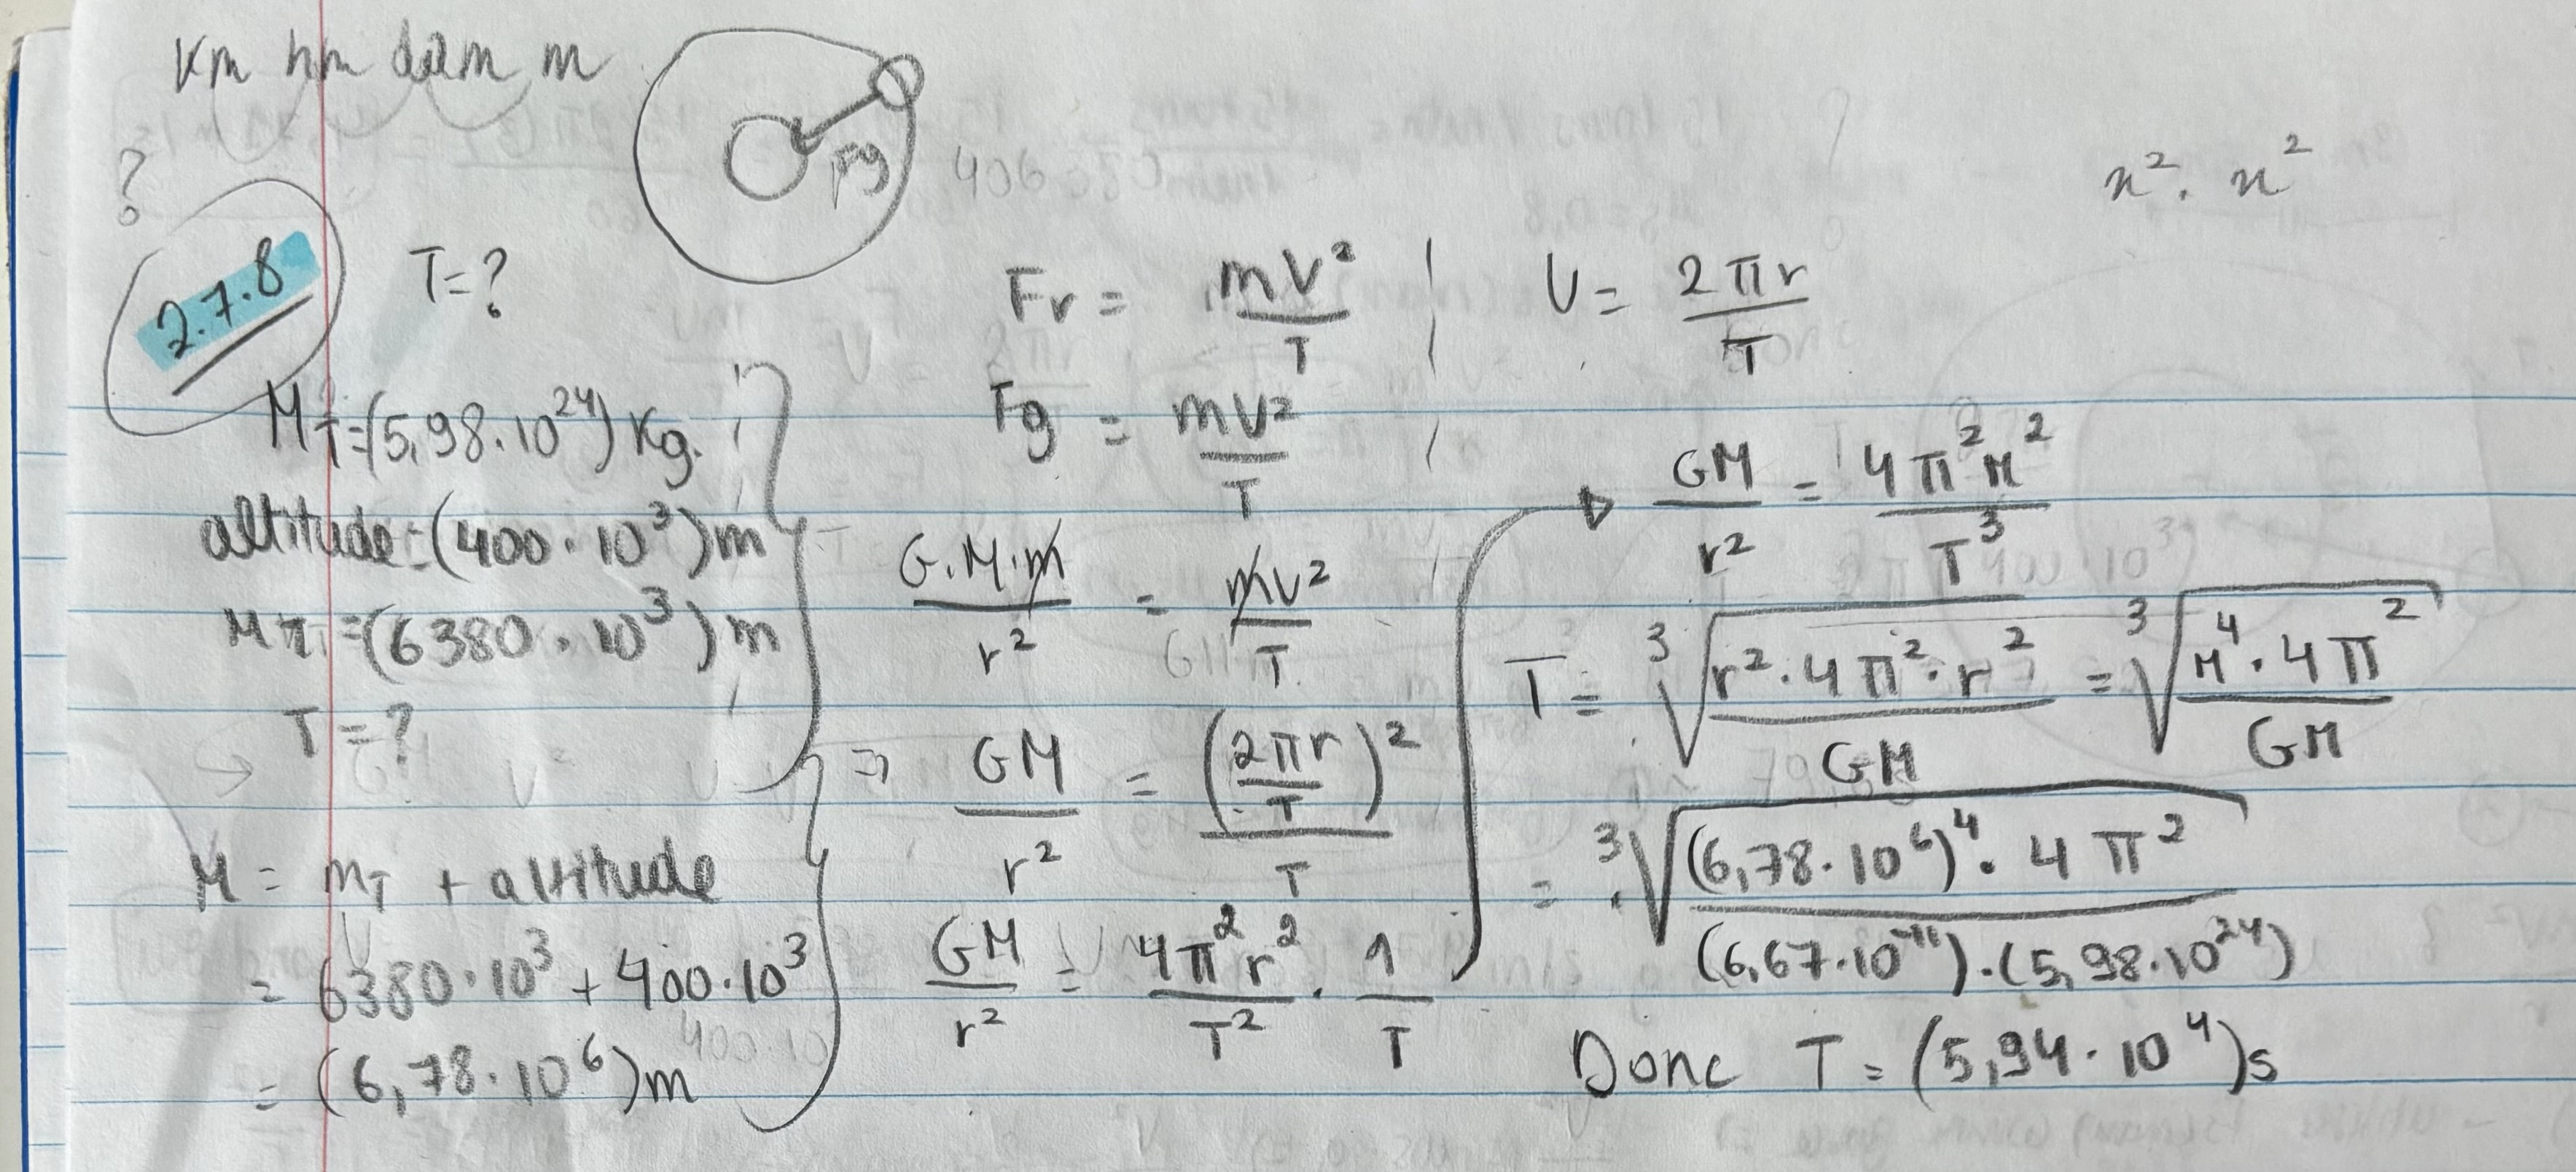 Km hm dam m
Fg
x². x²
?
2.7.8
T=?
M_T=(5,98.10²⁴) Kg.
altitude=(400.10³)m
r_T=(6380.10³)m
T=?
r = r_T + altitude
= 6380.10³ + 400.10³
= (6,78.10⁶)m
Fr = mv²/T
Fg = mv²/T
G.M.m/r² = mv²/T
=> GM/r² = (2πr/T)²/T
GM/r² = 4π²r²/T² . 1/T
V = 2πr/T
GM/r² = 4π²r²/T³
T = ³√(r².4π².r²/GM) = ³√(r⁴.4π²/GM)
= ³√((6,78.10⁶)⁴.4π²/(6,67.10⁻¹¹).(5,98.10²⁴))
Donc T = (5,94.10⁴)s